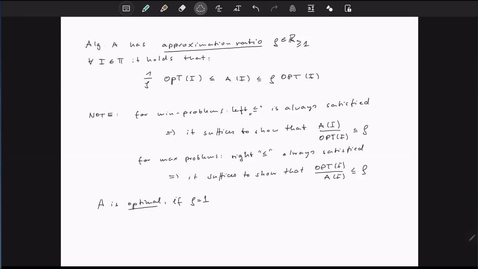 Alg. A has approximation ratio ρ ∈ ℝ≥1
∀ I ∈ Π it holds that:
1/ρ OPT(I) ≤ A(I) ≤ ρ OPT(I)
NOTE: for min-problems: left „≤" is always satisfied
⇒ it suffices to show that A(I)/OPT(I) ≤ ρ
for max problems: right "≤" always satisfied
⇒ it suffices to show that OPT(I)/A(I) ≤ ρ
A is optimal, if ρ=1